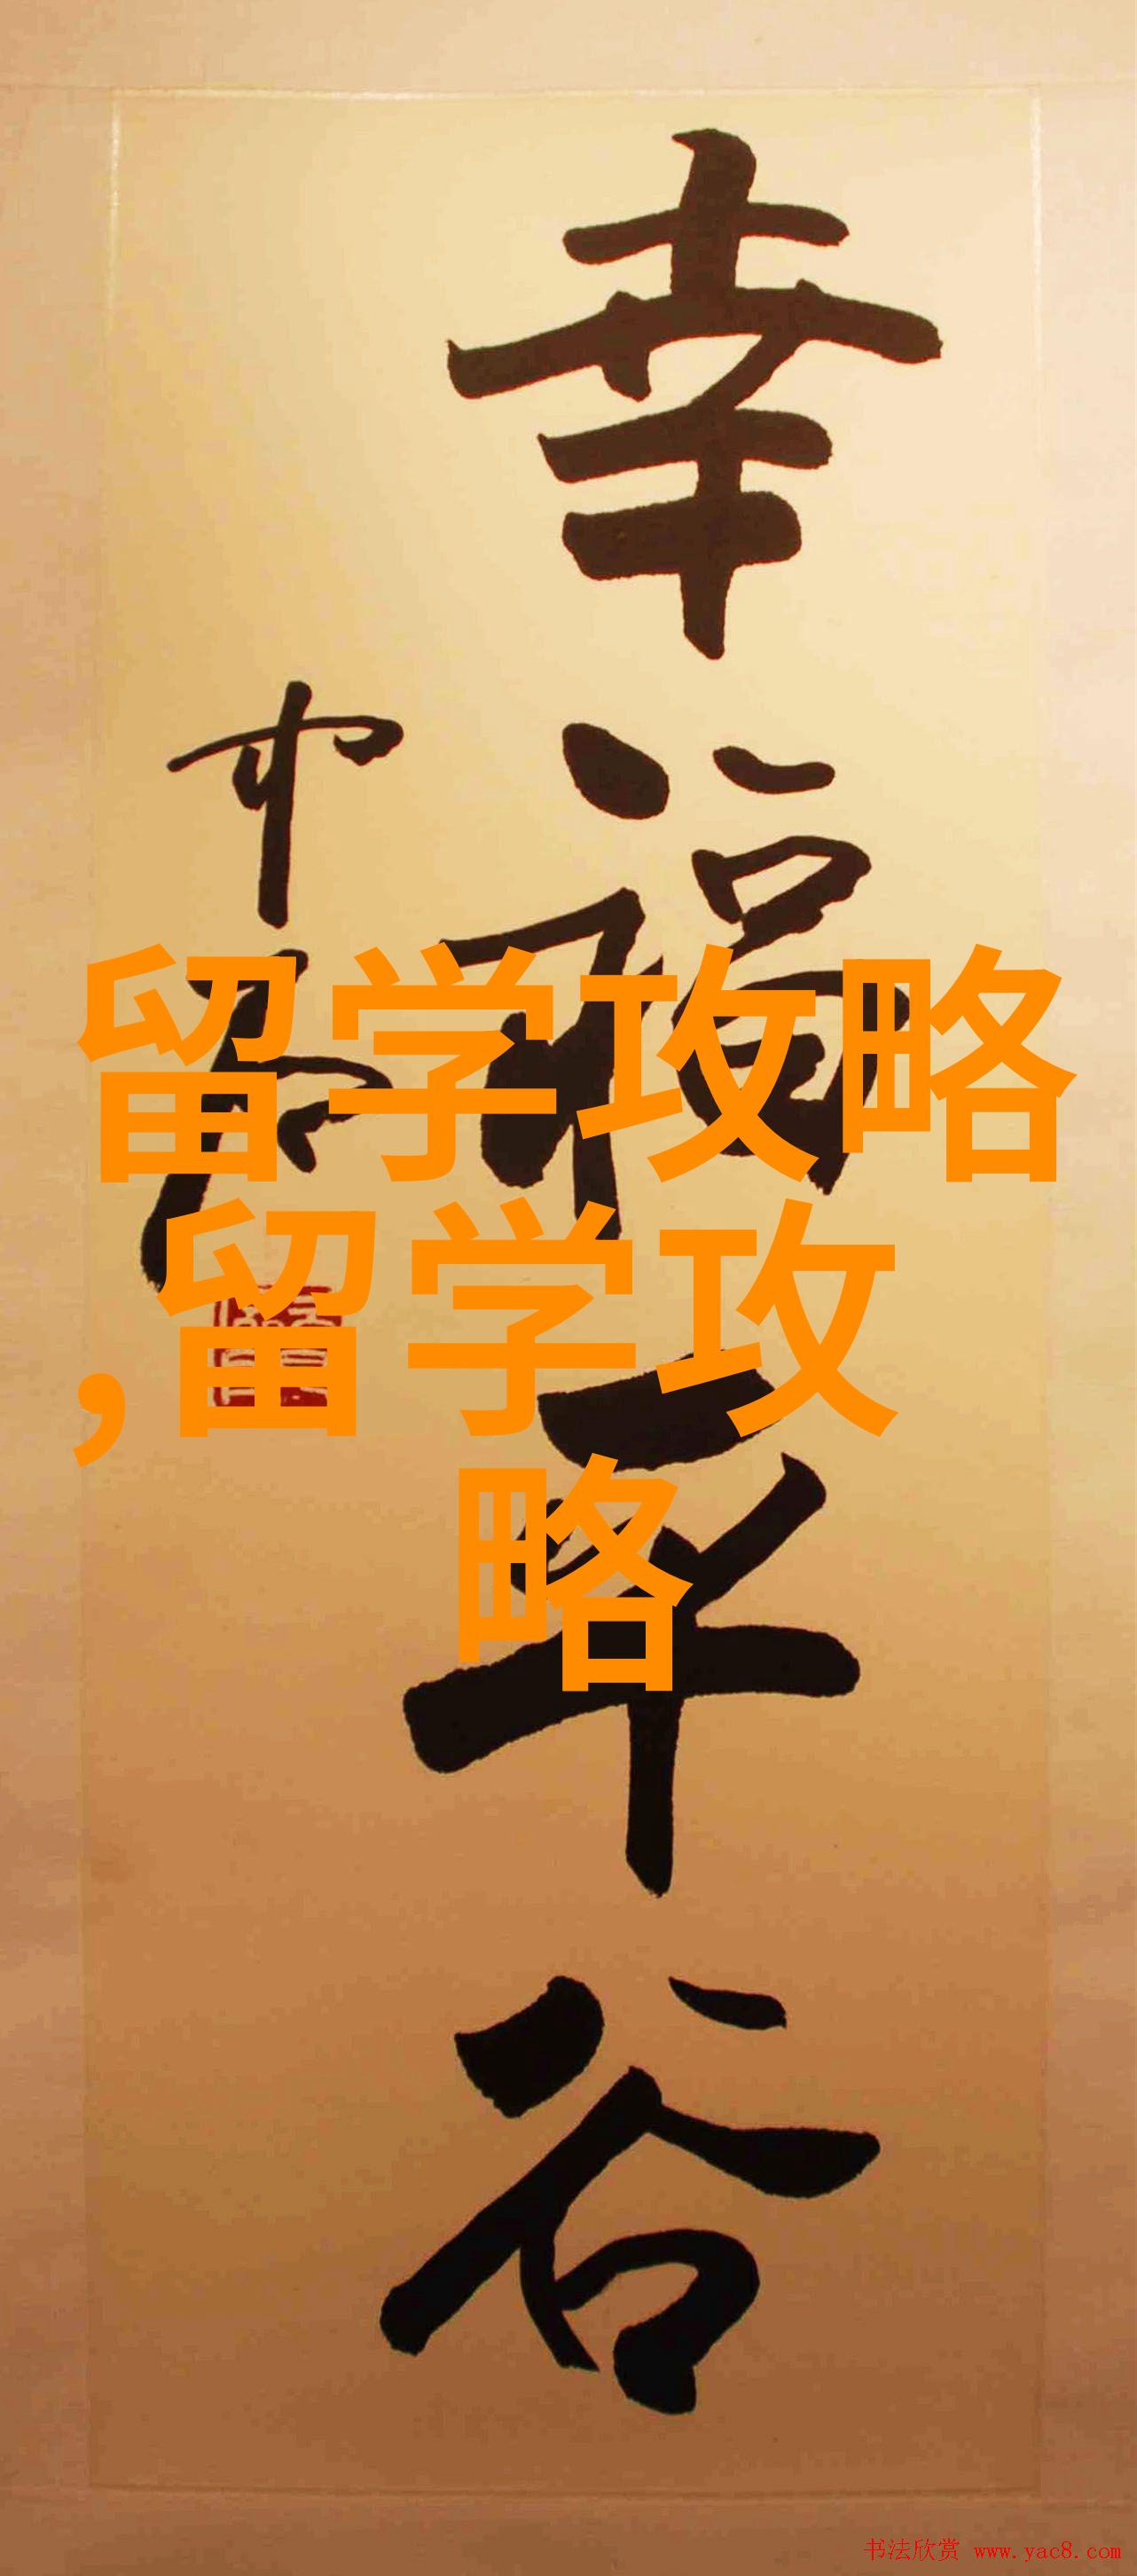 幸福平谷
留学攻略
,留学攻
略
书法欣赏 www.yac8.com